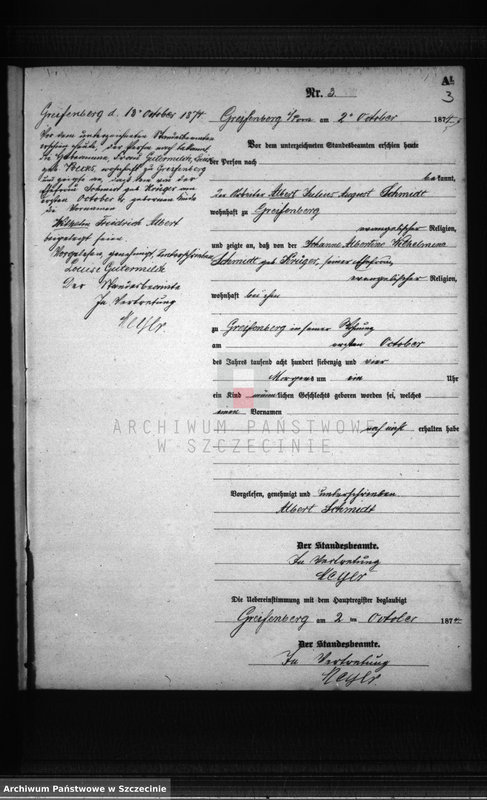 A1.
3
Nr. 3.
Greifenberg d. 13' October 1874
Vor dem unterzeichneten Standesbeamten
erschien heute, der Person nach bekannt,
die Hebamme, Frau Gutermilch, Louise
geb wohnhaft zu Greifenberg
und zeigte an, dass dem von der
Ehefrau Schmidt geb Krüger am
ersten October cr geborenen Kinde
die Vornamen
Wilhelm Friedrich Albert
beigelegt seien
Vorgelesen, genehmigt, unterschrieben
Louise Gutermilch
Der Standesbeamte
In Vertretung
Greifenberg i/Pom am 2' October 1874
Vor dem unterzeichneten Standesbeamten erschien heute
der Person nach
bekannt,
Der Arbeiter Albert Julius August Schmidt
wohnhaft zu Greifenberg
evangelischer Religion,
und zeigte an, daß von der Johanne Albertine Wilhelmine
Schmidt geb Krüger, seiner Ehefrau,
evangelischer Religion,
wohnhaft bei ihm
zu Greifenberg in seiner Wohnung
am ersten October
des Jahres tausend acht hundert siebenzig und vier
Morgens um ein Uhr
ein Kind männlichen Geschlechts geboren worden sei, welches
einen Vornamen
noch nicht erhalten habe
ARCHIWUM PAŃSTWOWE
W SZCZECINIE
Vorgelesen, genehmigt und unterschrieben
Albert Schmidt
Der Standesbeamte.
In Vertretung
Die Uebereinstimmung mit dem Hauptregister beglaubigt
Greifenberg am 2 ten October 1874.
Der Standesbeamte.
In Vertretung
Archiwum Państwowe w Szczecinie